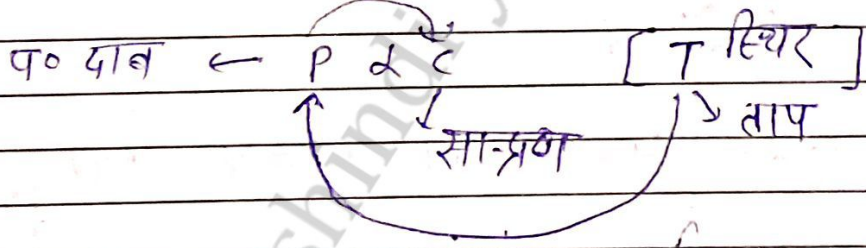 प० दाब ← P α C [T स्थिर]
सान्द्रण ताप